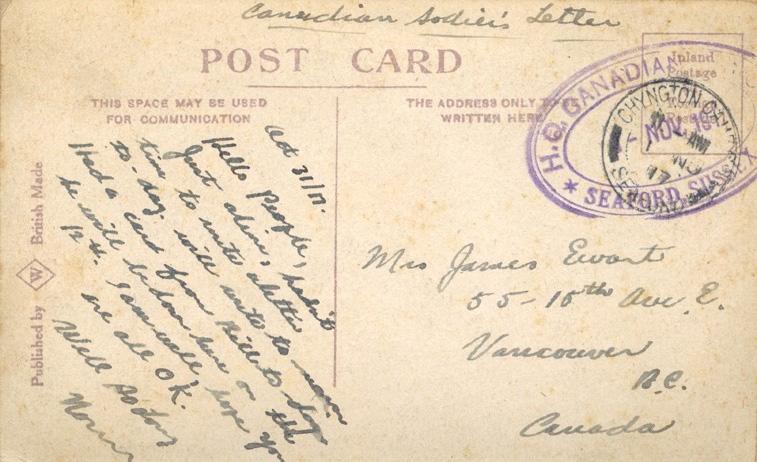 Canadian Sodier's Letter
POST CARD
THIS SPACE MAY BE USED
FOR COMMUNICATION
THE ADDRESS ONLY TO BE
WRITTEN HERE
Inland
Postage
H.Q. CANADIAN
NOV 19
* SEAFORD, SUSSEX
CHYNGTON CAMP
NO
17
SEAFORD
Published by W British Made
Oct 31/17.
Hello People,
Just alive, hadn't
time to write a letter
to-day will write to-morrow
Had a card from Bill to say
he will be down here on the
12th. I am well, hope you
are all OK.
Well So Long
Norm
Mrs James Ewart
55-10th Ave E.
Vancouver
B.C.
Canada